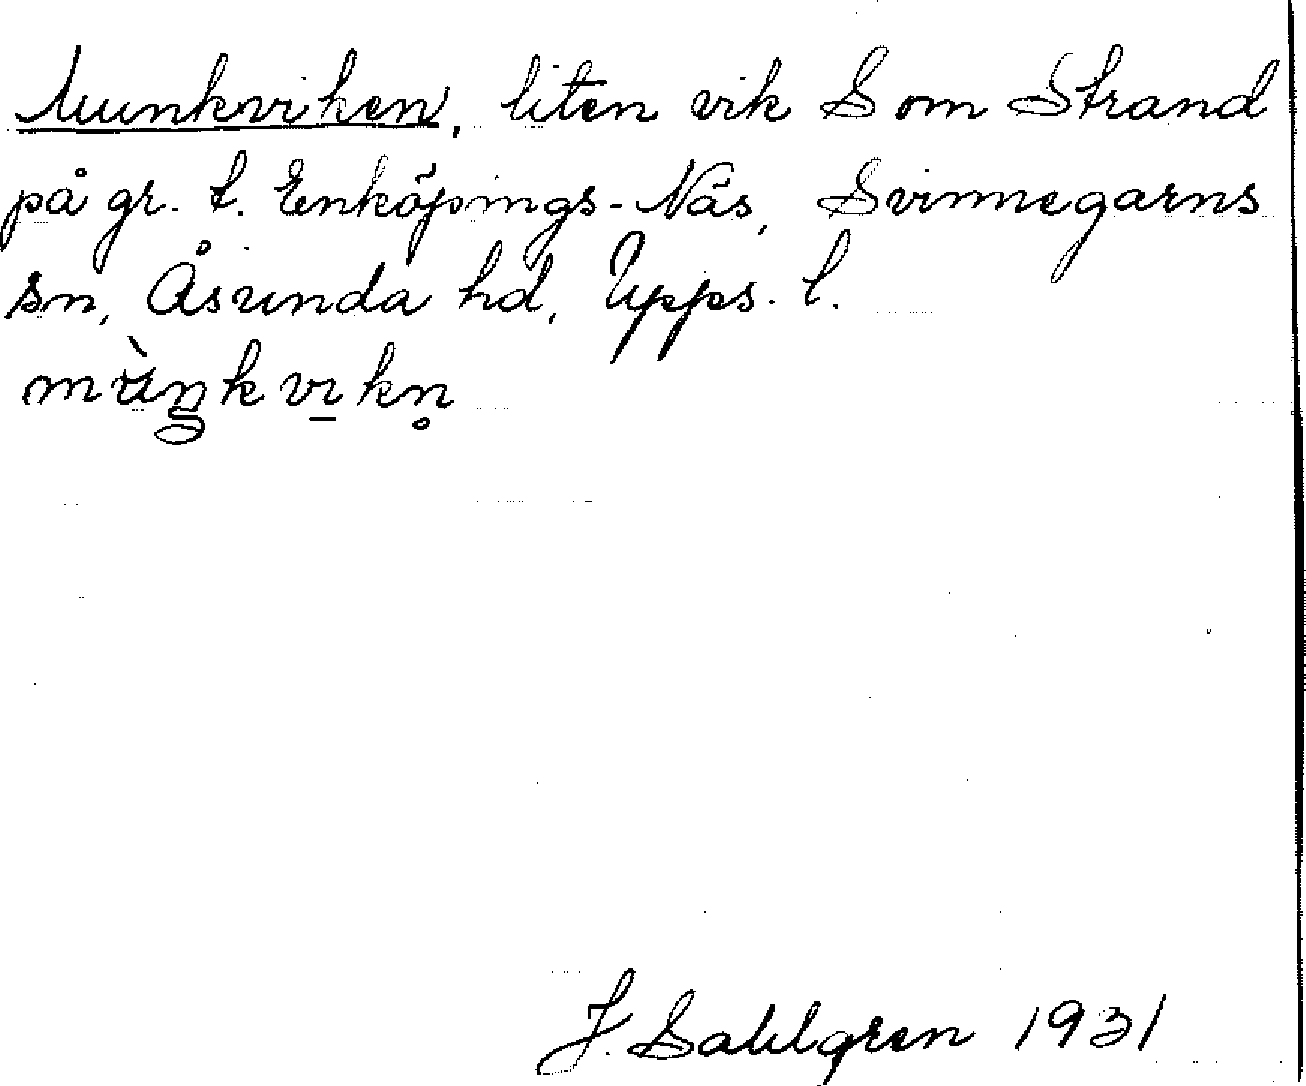 Munkviken, liten vik S om Strand
på gr. t. Enköpings-Näs, Svinnegarns
sn, Åsunda hd, Upps. l.
mùŋkvi̱kn̥
J. Sahlgren 1931